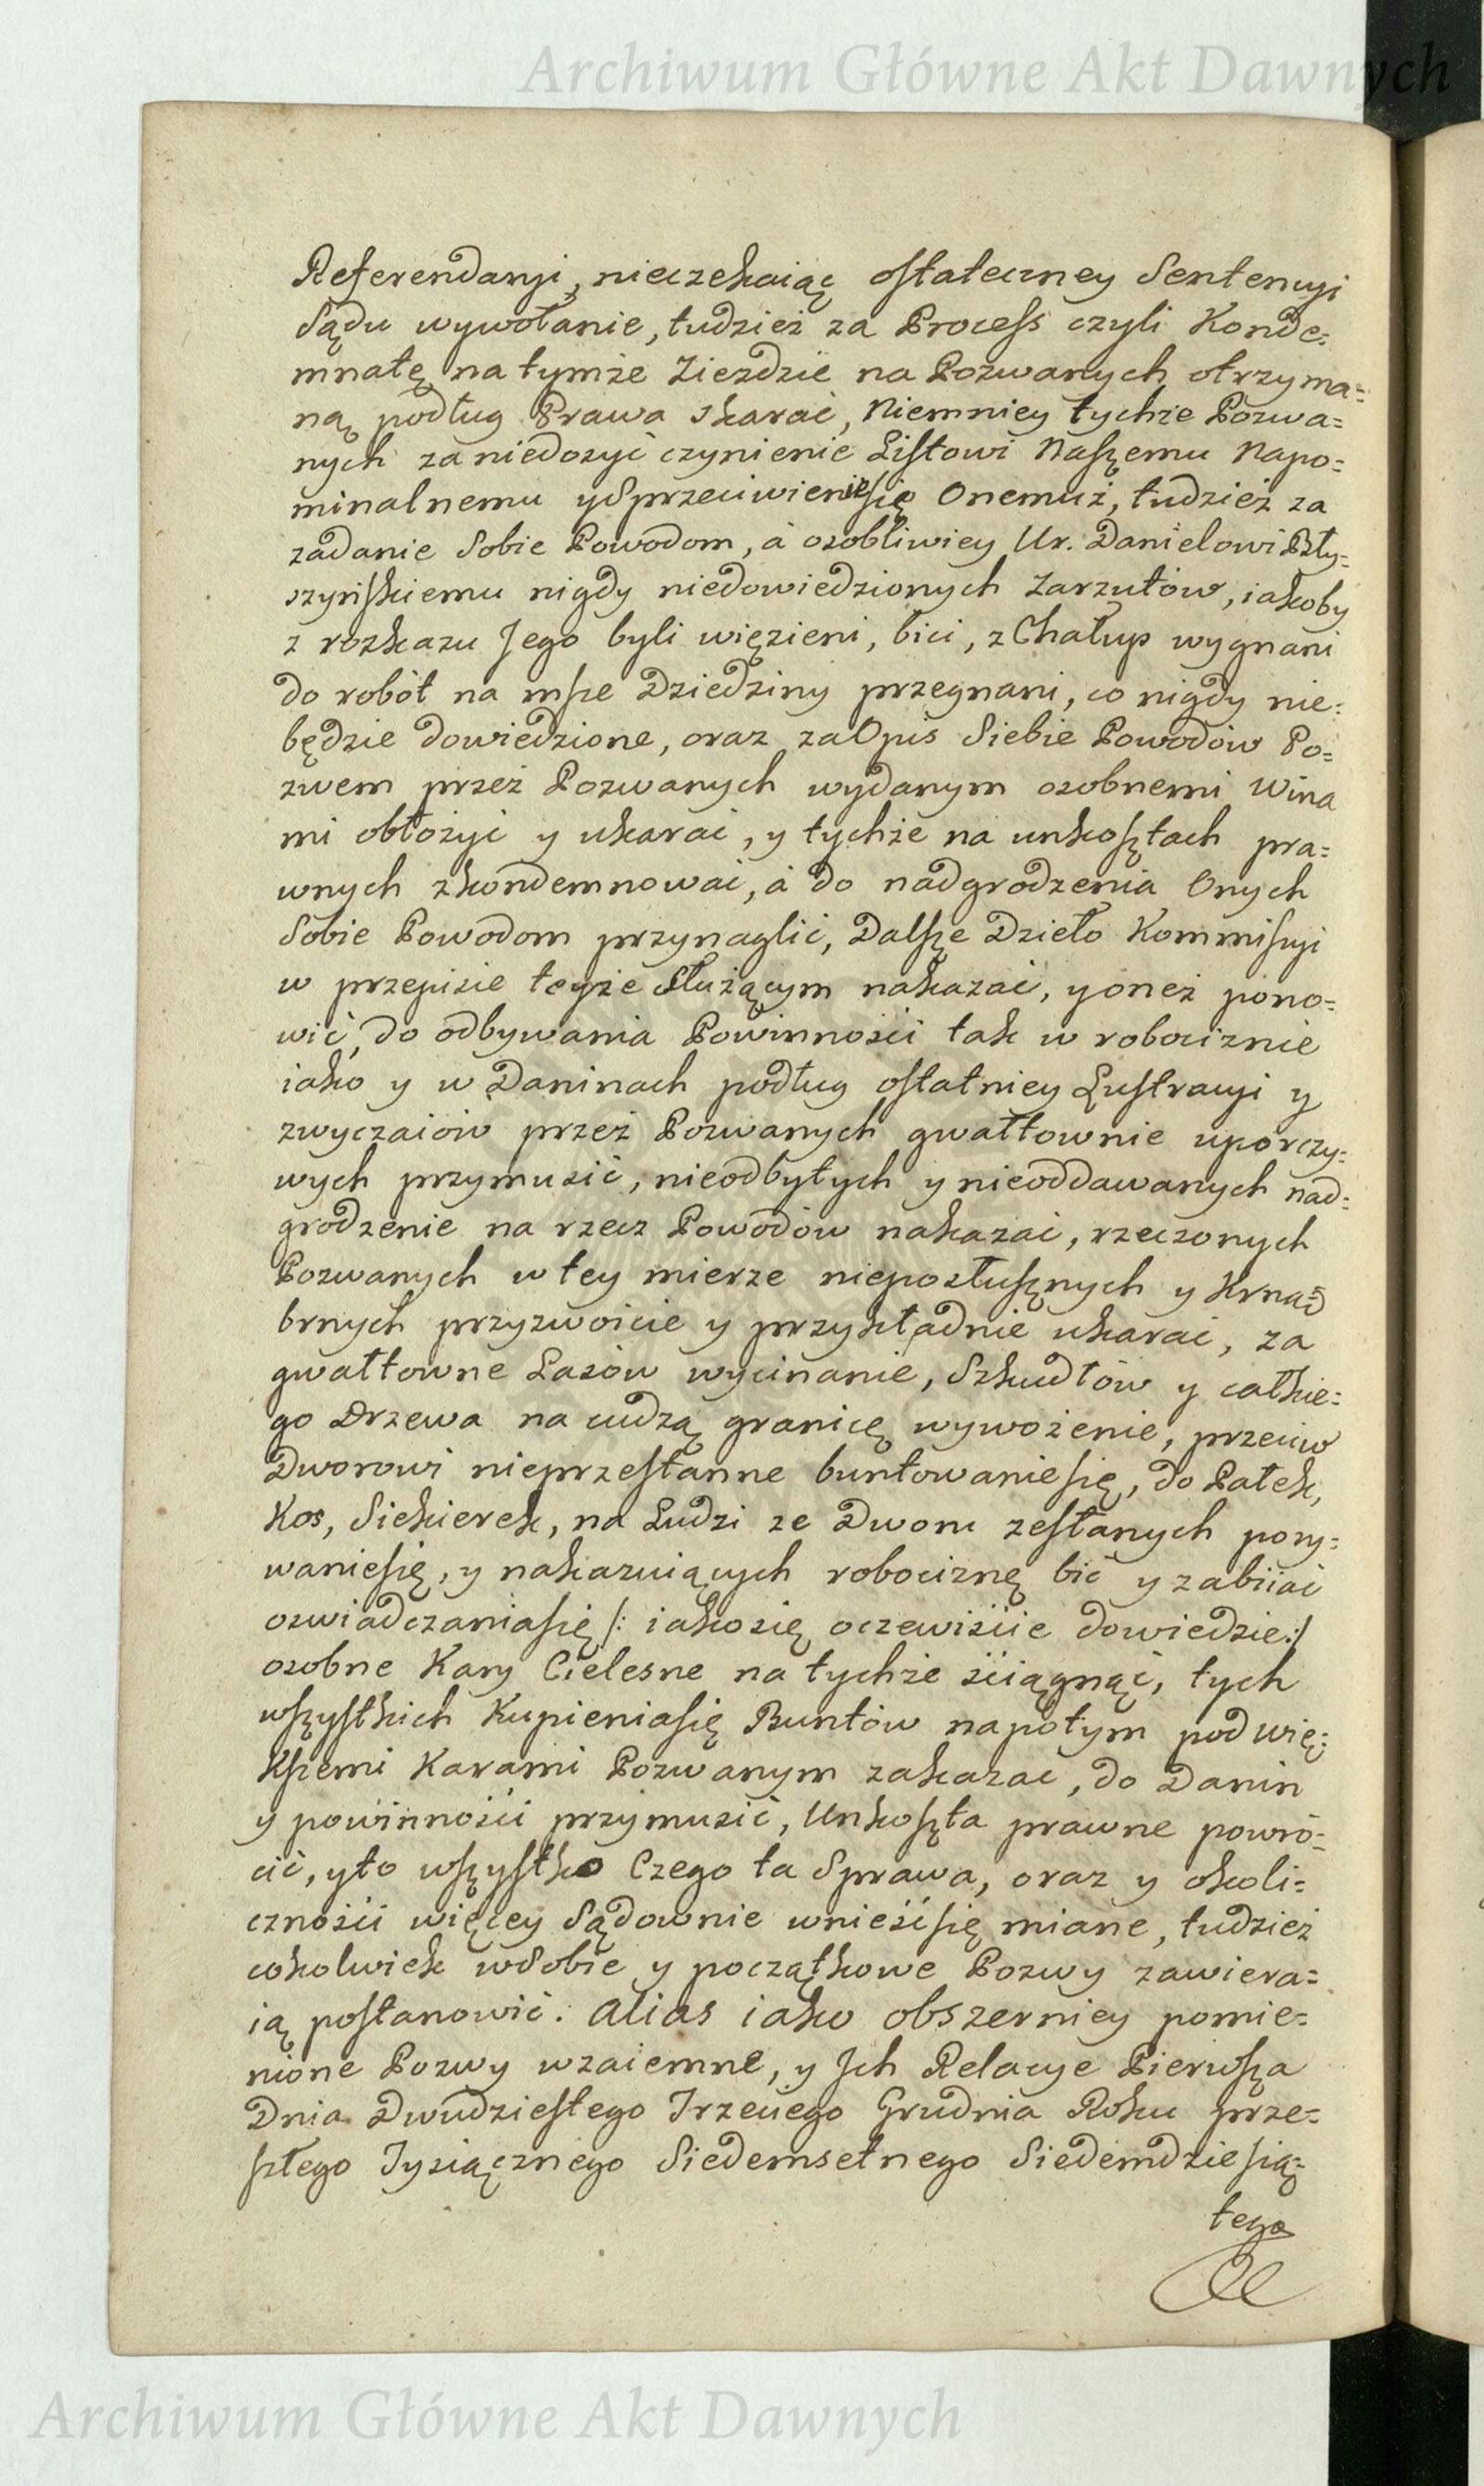 Archiwum Główne Akt Dawnych
Referendaryi, nieczekaiąc ostateczney Sentencyi
Sądu wywołanie, tudzież za Process czyli Konde=
mnatę na tymże Zieździe na Pozwanych otrzyma=
ną podług Prawa skarać, Niemniey tychże Pozwa=
nych za niedosyć czynienie Listowi Naszemu Napo=
minalnemu y Sprzeciwienie się Onemuż, tudzież za
zadanie Sobie Powodom, à osobliwiey Ur. Danielowi Bły=
szyńskiemu nigdy niedowiedzionych Zarzutów, iakoby
z rozkazu Jego byli więzieni, bici, z Chałup wygnani
do robót na insze Dziedziny przegnani, co nigdy nie=
będzie dowiedzione, oraz za Opis Siebie Powodów Po=
zwem przez Pozwanych wydanym osobnemi Wina
mi obłożyć y ukarać, y tychże na unkosztach pra=
wnych zkondemnować, à do nadgrodzenia Onych
Sobie Powodom przynaglić, Dalsze Dzieło Kommisyi
w przepisie teyże służącym nakazać, y oneż pono=
wić, do odbywania Powinności tak w robociznie
iako y w Daninach podług ostatniey Lustracyi y
zwyczaiów przez Pozwanych gwałtownie uporczy=
wych przymusić, nieodbytych y nieoddawanych nad=
grodzenie na rzecz Powodów nakazać, rzeczonych
Pozwanych w tey mierze nieposłusznych y Krnąb
brnych przyzwoicie y przykładnie ukarać, za
gwałtowne Lasów wycinanie, Szkudłów y całkie=
go Drzewa na cudzą granicę wywożenie, przeciw
Dworowi nieprzestanne buntowanie się, do Pałek,
Kos, Siekierek, na Ludzi ze Dworu zesłanych pory=
wanie się, y nakazuiących robociznę bić y zabiiać
oswiadczania się /: iako się oczewiście dowiedzie :/
osobne Kary Cielesne na tychże ściągnąć, tych
wszystkich Kupienia się Buntów napotym pod wię=
kszemi Karami Pozwanym zakazać, do Danin
y powinności przymusić, Unkoszta prawne powró=
cić, y to wszystko Czego ta Sprawa, oraz y okoli=
czności więcey Sądownie wnieść się miane, tudzież
cokolwiek w Sobie y początkowe Pozwy zawiera=
ią postanowić. Alias iako obszerniey pomie=
nione Pozwy wzaiemne, y Jch Relacye Pierwsza
Dnia Dwudziestego Trzeciego Grudnia Roku prze=
szłego Tysiącznego Siedemsetnego Siedemdziesią=
tego
Archiwum Główne Akt Dawnych